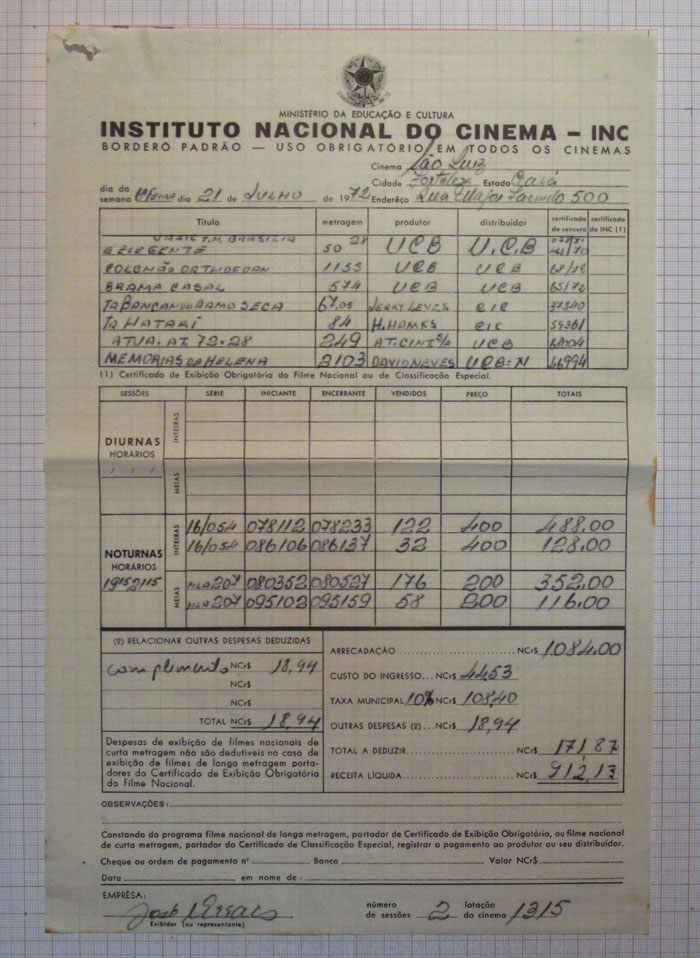 MINISTÉRIO DA EDUCAÇÃO E CULTURA
INSTITUTO NACIONAL DO CINEMA – INC
BORDERÔ PADRÃO — USO OBRIGATÓRIO EM TODOS OS CINEMAS
Cinema São Luiz
Cidade Fortaleza Estado Ceará
dia da semana 6ª Feira dia 21 de JULHO de 1972 Endereço Rua Major Facundo 500
Título metragem produtor distribuidor certificado de censura certificado do INC (1)
BRASILIA
E ELEGENTE 50 UCB U.C.B
COLCHÃO 1155 UCB UCB
BRAMA CASAL 574 UCB UCB 65/72
TR BANCANDO A AMA SECA 67,05 JERRY LEVES CIC
TR HATARI 84 H. HAWKS CIC 59361
ATUA. AT. 72-28 249 UCB
MEMORIAS DE HELENA 2103 DAVID NEVES UCB-N 46994
(1) Certificado de Exibição Obrigatória do Filme Nacional ou de Classificação Especial.
SESSÕES SÉRIE INICIANTE ENCERRANTE VENDIDOS PREÇO TOTAIS
DIURNAS
HORÁRIOS
INTEIRAS
MEIAS
NOTURNAS
HORÁRIOS
1915 2115
INTEIRAS
16/054 078112 078233 122 400 488.00
16/054 086106 086137 32 400 128.00
MEIAS
207 080352 080527 176 200 352.00
207 095102 095159 58 200 116.00
(2) RELACIONAR OUTRAS DESPESAS DEDUZIDAS
complemento NCr$ 18,94
NCr$
NCr$
TOTAL NCr$ 18,94
Despesas de exibição de filmes nacionais de
curta metragem não são dedutíveis no caso de
exibição de filmes de longa metragem porta-
dores do Certificado de Exibição Obrigatória
do Filme Nacional.
ARRECADAÇÃO NCr$ 1084.00
CUSTO DO INGRESSO... NCr$ 44,53
TAXA MUNICIPAL 10% NCr$ 108,40
OUTRAS DESPESAS (2)... NCr$ 18,94
TOTAL A DEDUZIR NCr$ 171,87
RECEITA LÍQUIDA NCr$ 912,13
OBSERVAÇÕES:
Constando do programa filme nacional de longa metragem, portador de Certificado de Exibição Obrigatória, ou filme nacional
de curta metragem, portador do Certificado de Classificação Especial, registrar o pagamento ao produtor ou seu distribuidor.
Cheque ou ordem de pagamento nº Banco Valor NCr$
Data em nome de:
EMPRÊSA:
José
Exibidor (ou representante)
número de sessões 2 lotação do cinema 1315